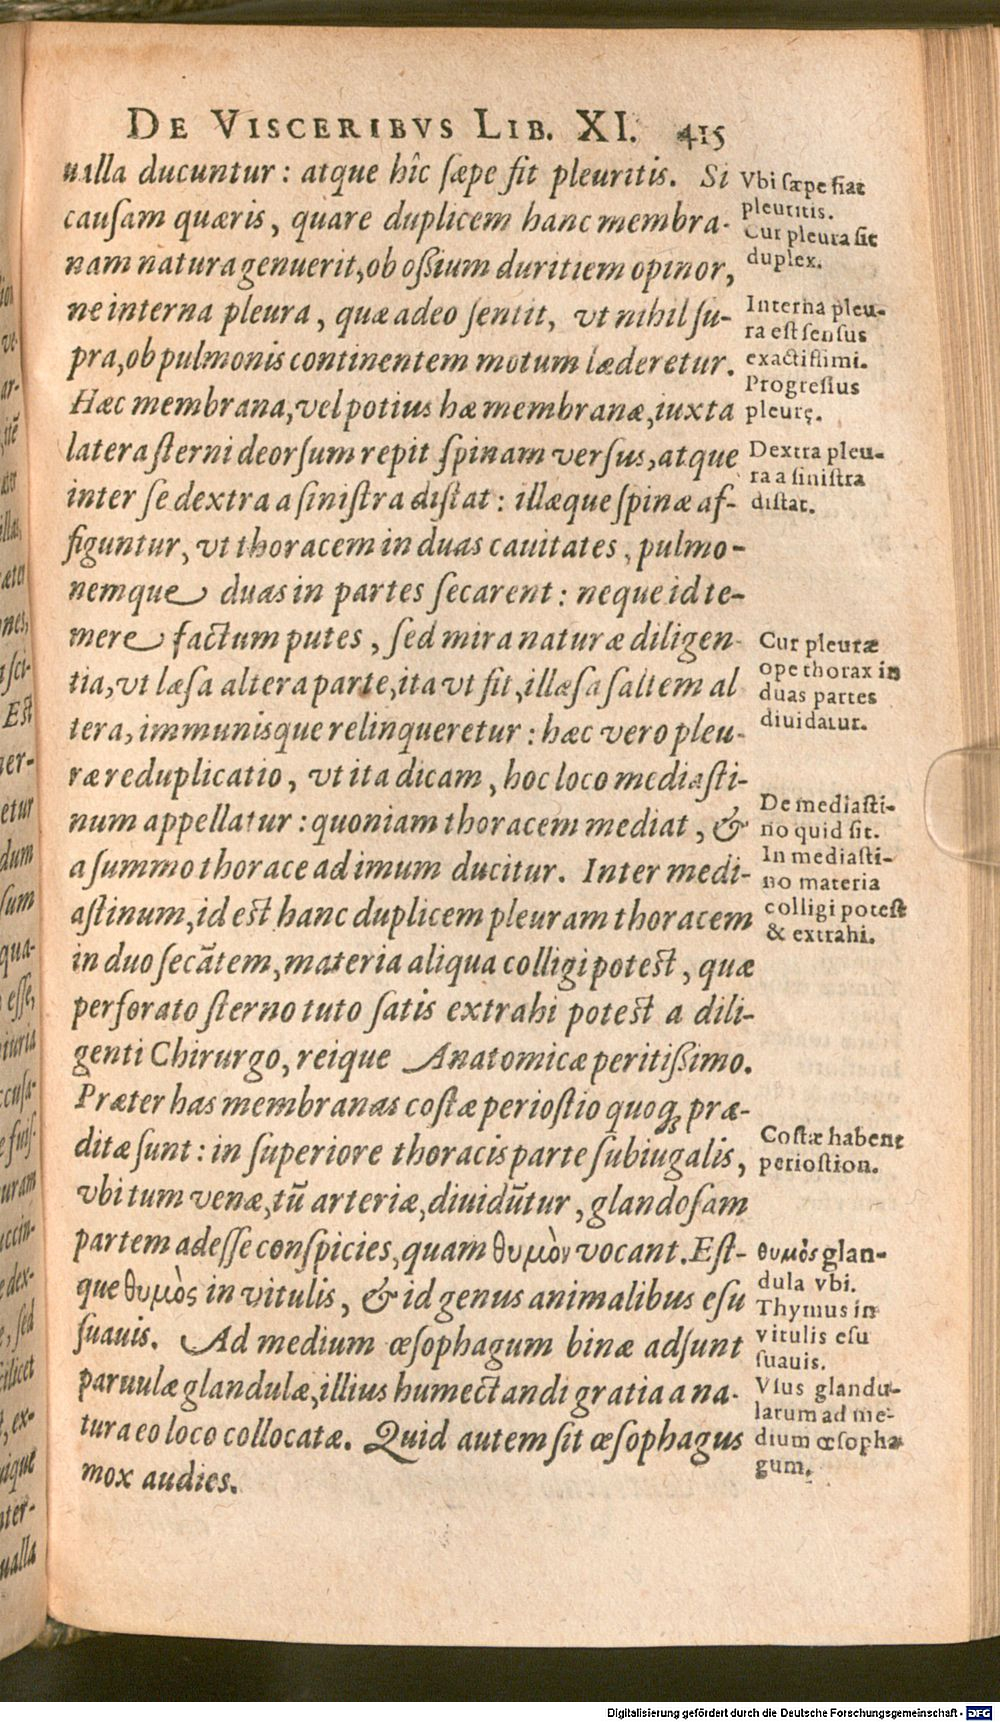 DE VISCERIBVS LIB. XI. 415
nalla ducuntur: atque hîc sæpe fit pleuritis. Si
causam quæris, quare duplicem hanc membra-
nam natura genuerit, ob oßium duritiem opinor,
ne interna pleura, quæ adeo sentit, vt nihil su-
pra, ob pulmonis continentem motum læderetur.
Hæc membrana, vel potius hæ membranæ, iuxta
latera sterni deorsum repit spinam versus, atque
inter se dextra a sinistra distat: illæque spinæ af-
figuntur, vt thoracem in duas cauitates, pulmo-
nemque duas in partes secarent: neque id te-
mere factum putes, sed mira naturæ diligen-
tia, vt læsa altera parte, ita vt fit, illæsa saltem al
tera, immunisque relinqueretur: hæc vero pleu-
ræ reduplicatio, vt ita dicam, hoc loco mediasti-
num appellatur: quoniam thoracem mediat, &
a summo thorace ad imum ducitur. Inter medi-
astinum, id est hanc duplicem pleuram thoracem
in duo secãtem, materia aliqua colligi potest, quæ
perforato sterno tuto satis extrahi potest a dili-
genti Chirurgo, reique Anatomicæ peritißimo.
Præter has membranas costæ periostio quoq; præ-
ditæ sunt: in superiore thoracis parte subiugalis,
vbi tum venæ, tũ arteriæ, diuidũtur, glandosam
partem adesse conspicies, quam θυμὸν vocant. Est-
que θυμὸς in vitulis, & id genus animalibus esu
suauis. Ad medium œsophagum binæ adsunt
paruulæ glandulæ, illius humectandi gratia a na-
tura eo loco collocatæ. Quid autem sit œsophagus
mox audies.
Vbi sæpe fiat
pleuritis.
Cur pleura sit
duplex.
Interna pleu-
ra est sensus
exactissimi.
Progressus
pleurę.
Dextra pleu-
ra a sinistra
distat.
Cur pleuræ
ope thorax in
duas partes
diuidatur.
De mediasti-
no quid sit.
In mediasti-
no materia
colligi potest
& extrahi.
Costæ habent
periostion.
θυμὸς glan-
dula vbi.
Thymus in
vitulis esu
suauis.
Vsus glandu-
larum ad me-
dium œsopha
gum.
ve-
ar-
itẽ
illas,
nes,
Est
ner-
etur
dum
sum
qua-
esse,
iuria
ccusa-
uram
ccin-
e dex-
e, sed
cilicet
, ex-
nique
nter-
nalla
Digitalisierung gefördert durch die Deutsche Forschungsgemeinschaft - DFG